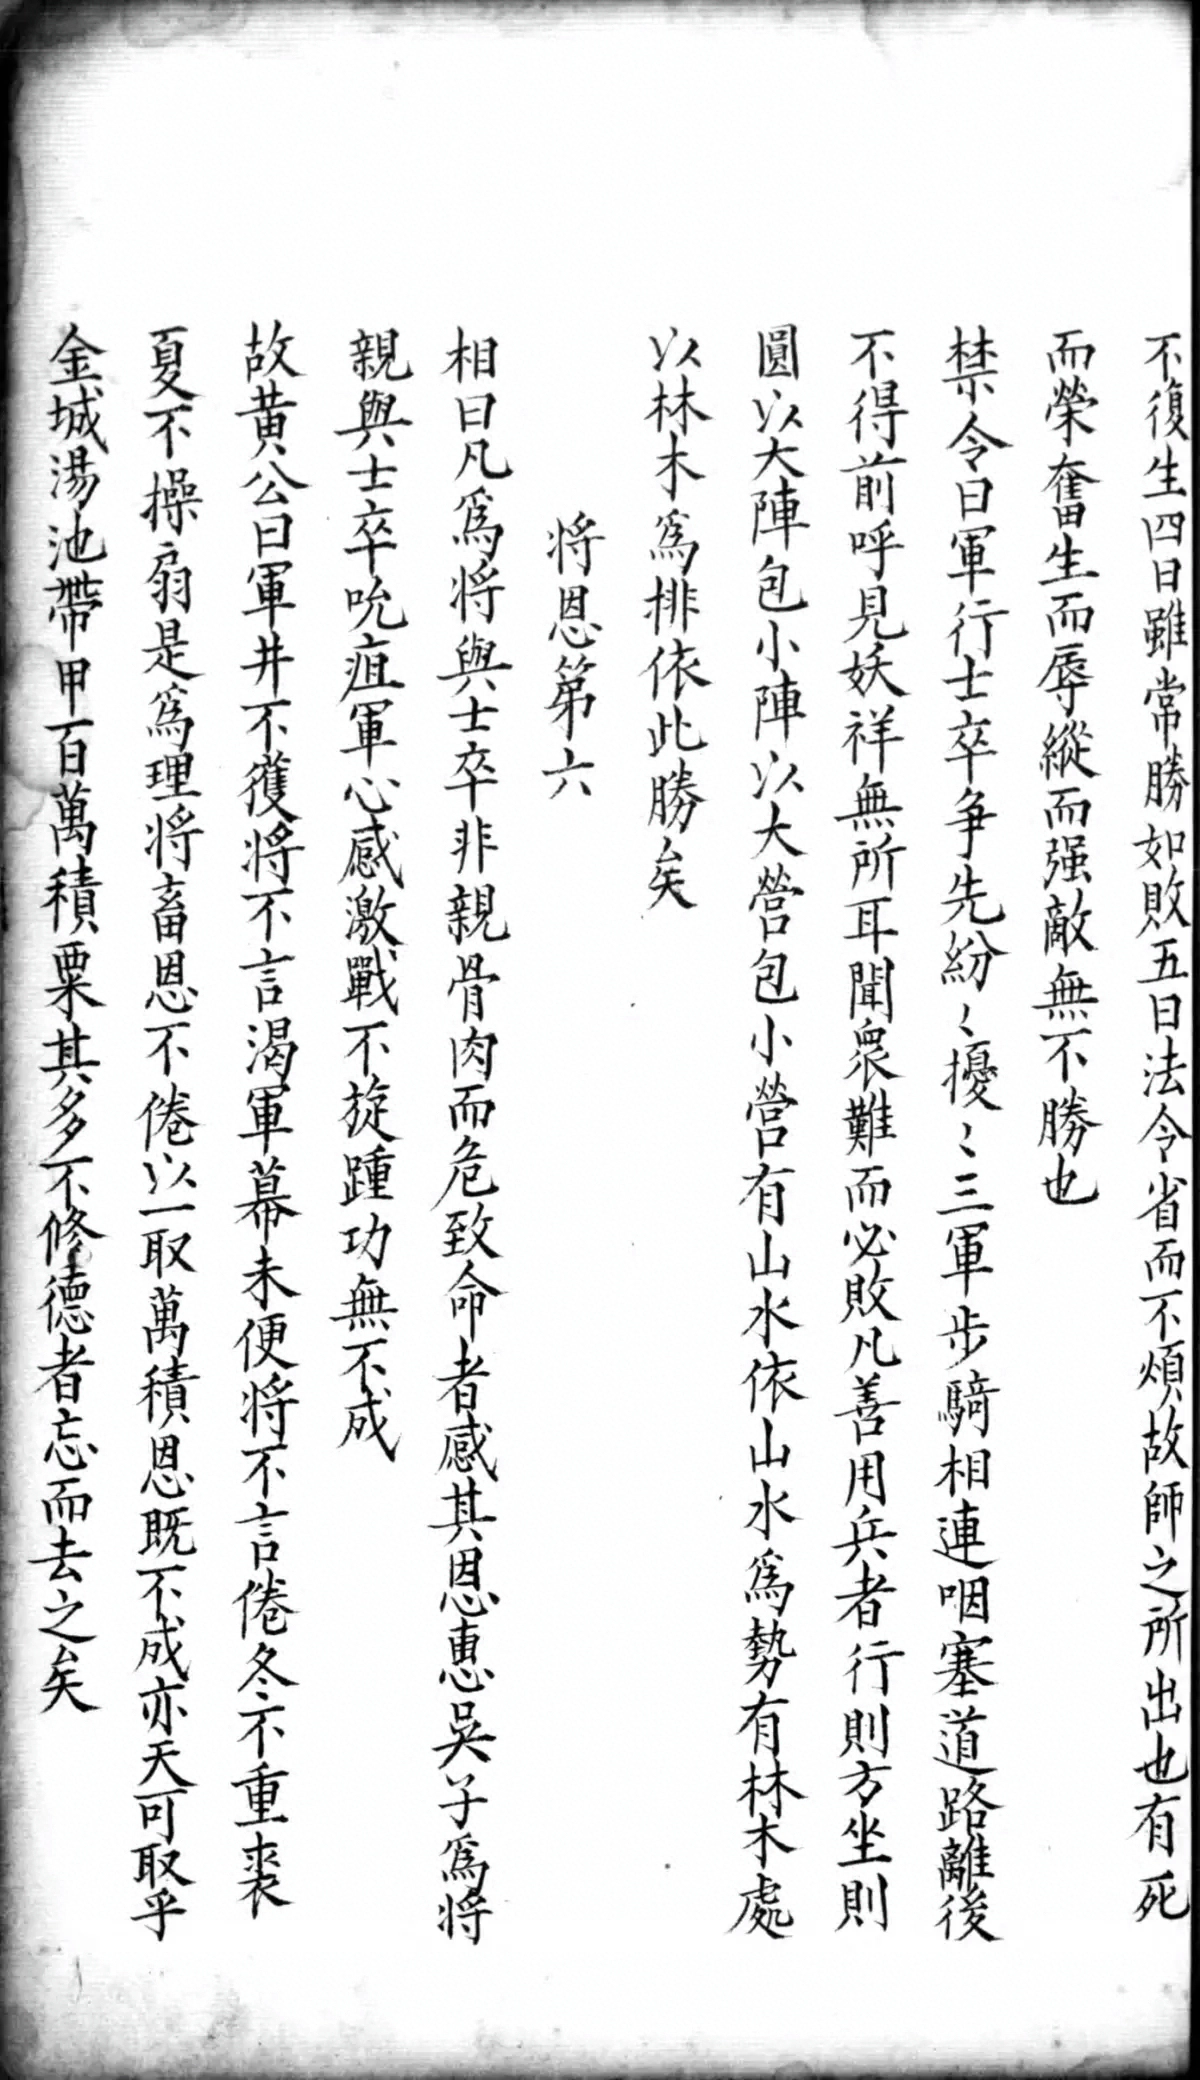 不復生四日雖常勝如敗五日法令省而不煩故師之所出也有死
而榮奮生而辱縱而强敵無不勝也
禁令曰軍行士卒争先紛〻擾〻三軍步騎相連咽塞道路離後
不得前呼見妖祥無所耳聞衆難而必敗凡善用兵者行則方坐則
圓以大陣包小陣以大營包小營有山水依山水爲勢有林木處
以林木爲排依此勝矣
将恩第六
相曰凡爲将與士卒非親骨肉而危致命者感其恩惠吳子爲将
親與士卒吮疽軍心感激戰不旋踵功無不成
故黄公曰軍井不獲将不言渴軍幕未便将不言倦冬不重裘
夏不操扇是爲理将畜恩不倦以一取萬積恩既不成亦天可取乎
金城湯池帶甲百萬積粟其多不修德者忘而去之矣